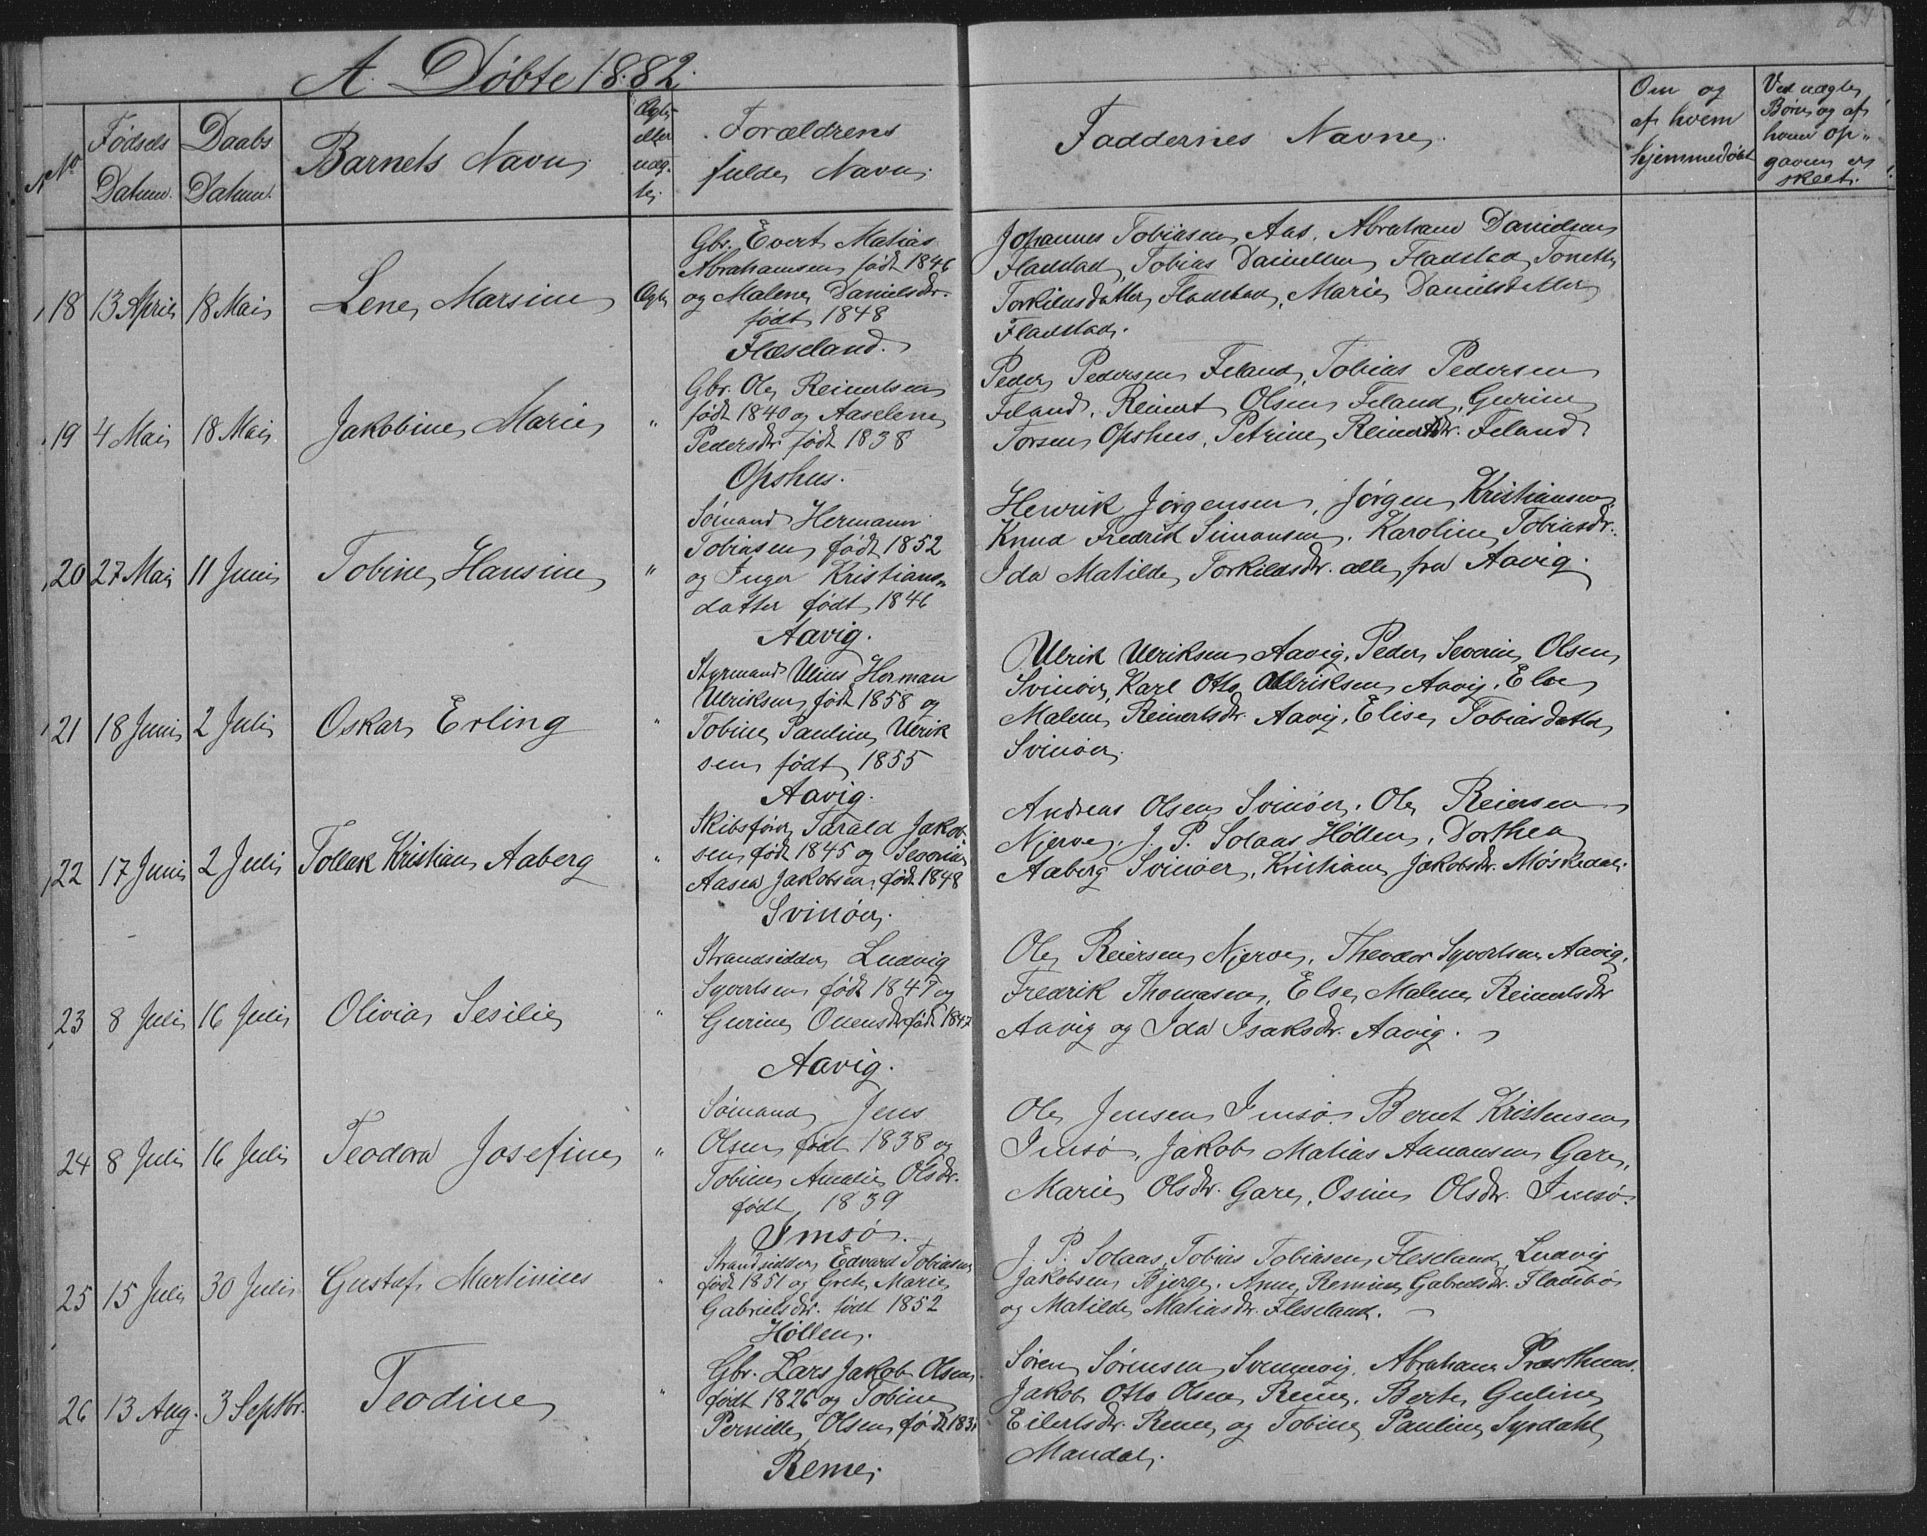 24
A. Døbte 1882.
No
Fødsels Datum.
Daabs Datum.
Barnets Navn.
Ægte eller uægte.
Forældrens fulde Navn.
Faddernes Navne.
Om og af hvem hjemmedøbt
Ved uægte Børn og af hvem opgaven er skeet.
18 13 April 18 Mai Lene Marsine Ægte
Gbr. Evert Matias
Abrahamsen født 1846
og Malene Danielsdr.
født 1848
Flæseland.
Johannes Tobiasen Aas, Abraham Danielsen
Fladstad, Tobias Danielsen Fladstad, Tonette
Torkildsdatter Fladstad, Marie Danielsdatter
Fladstad.
19 4 Mai 18 Mai Jakobine Marie "
Gbr. Ole Reinertsen
født 1840 og Aaselene
Pedersdr. født 1838
Opshus.
Peder Pedersen Feland, Tobias Pedersen
Feland, Reinert Olsen Feland, Gurine
Torsen Opshus, Petrine Reinertsdr. Feland
20 27 Mai 11 Juni Tobine Hansine "
Sømand Hermann
Tobiasen født 1852
og Inger Kristians-
datter født 1846
Aavig.
Henrik Jørgensen, Jørgen Kristiansen
Knud Fredrik Simonsen, Karoline Tobiasdr.
Ida Matilde Torkildsdr. alle fra Aavig.
21 18 Juni 2 Juli Oskar Erling "
Styrmand Herman
Ulriksen født 1858 og
Tobine Pauline Ulrik
sen født 1855
Aavig.
Ulrik Ulriksen Aavig, Peder Severin Olsen
Svinøer, Karl Otto Ulriksen Aavig, Else
Malene Reinertsdr. Aavig, Elise Tobiasdatter
Svinøer.
22 17 Juni 2 Juli Tollak Kristian Aaberg "
Skibsfører Tarald Jakob
sen født 1845 og Severine
Aasea Jakobsen født 1848
Svinøer.
Andreas Olsen Svinøer, Ole Reiersen
Njerve, J. P. Solaas Høllen, Dorthea
Aaberg Svinøer, Kristiane Jakobsdr. Møskedal.
23 8 Juli 16 Juli Olivia Sesilie "
Strandsidder Ludvig
Syvertsen født 1847 og
Gurine født
Aavig.
Ole Reiersen Njerve, Theodor Syvertsen Aavig,
Fredrik Thomasen, Else Malene Reinertsdr
Aavig og Ida Isaksdr. Aavig.
24 8 Juli 16 Juli Teodora Josefine "
Sømand Jens
Olsen født 1838 og
Tobine Amalie Olsdr.
født 1839
Imsø.
Ole Jensen Imsø, Bernt Kristensen
Imsø, Jakob Matias Aanansen Gare,
Marie Olsdr. Gare, Osine Olsdr. Imsø.
25 15 Juli 30 Juli Gustaf Martinius "
Strandsidder Edvard Tobiasen
født 1851 og Grete Marie
Gabrielsdr. født 1852
Høllen.
J. P. Solaas, Tobias Tobiasen Fleseland, Ludvig
Jakobsen Bjerge, Anne Gabrielsdr. Fladebø
og Matilde Matiasdr. Fleseland.
26 13 Aug. 3 Septbr. Teodine "
Gbr. Lars Jakob Olsen
født 1826 og Tobine
Pernille Olsen født
Reme.
Søren Sørensen, Abraham
Jakob Otto Olsen Reme, Berte Guline
Eilertsdr. Reme og Tobine Pauline Syrdahl
Mandal.